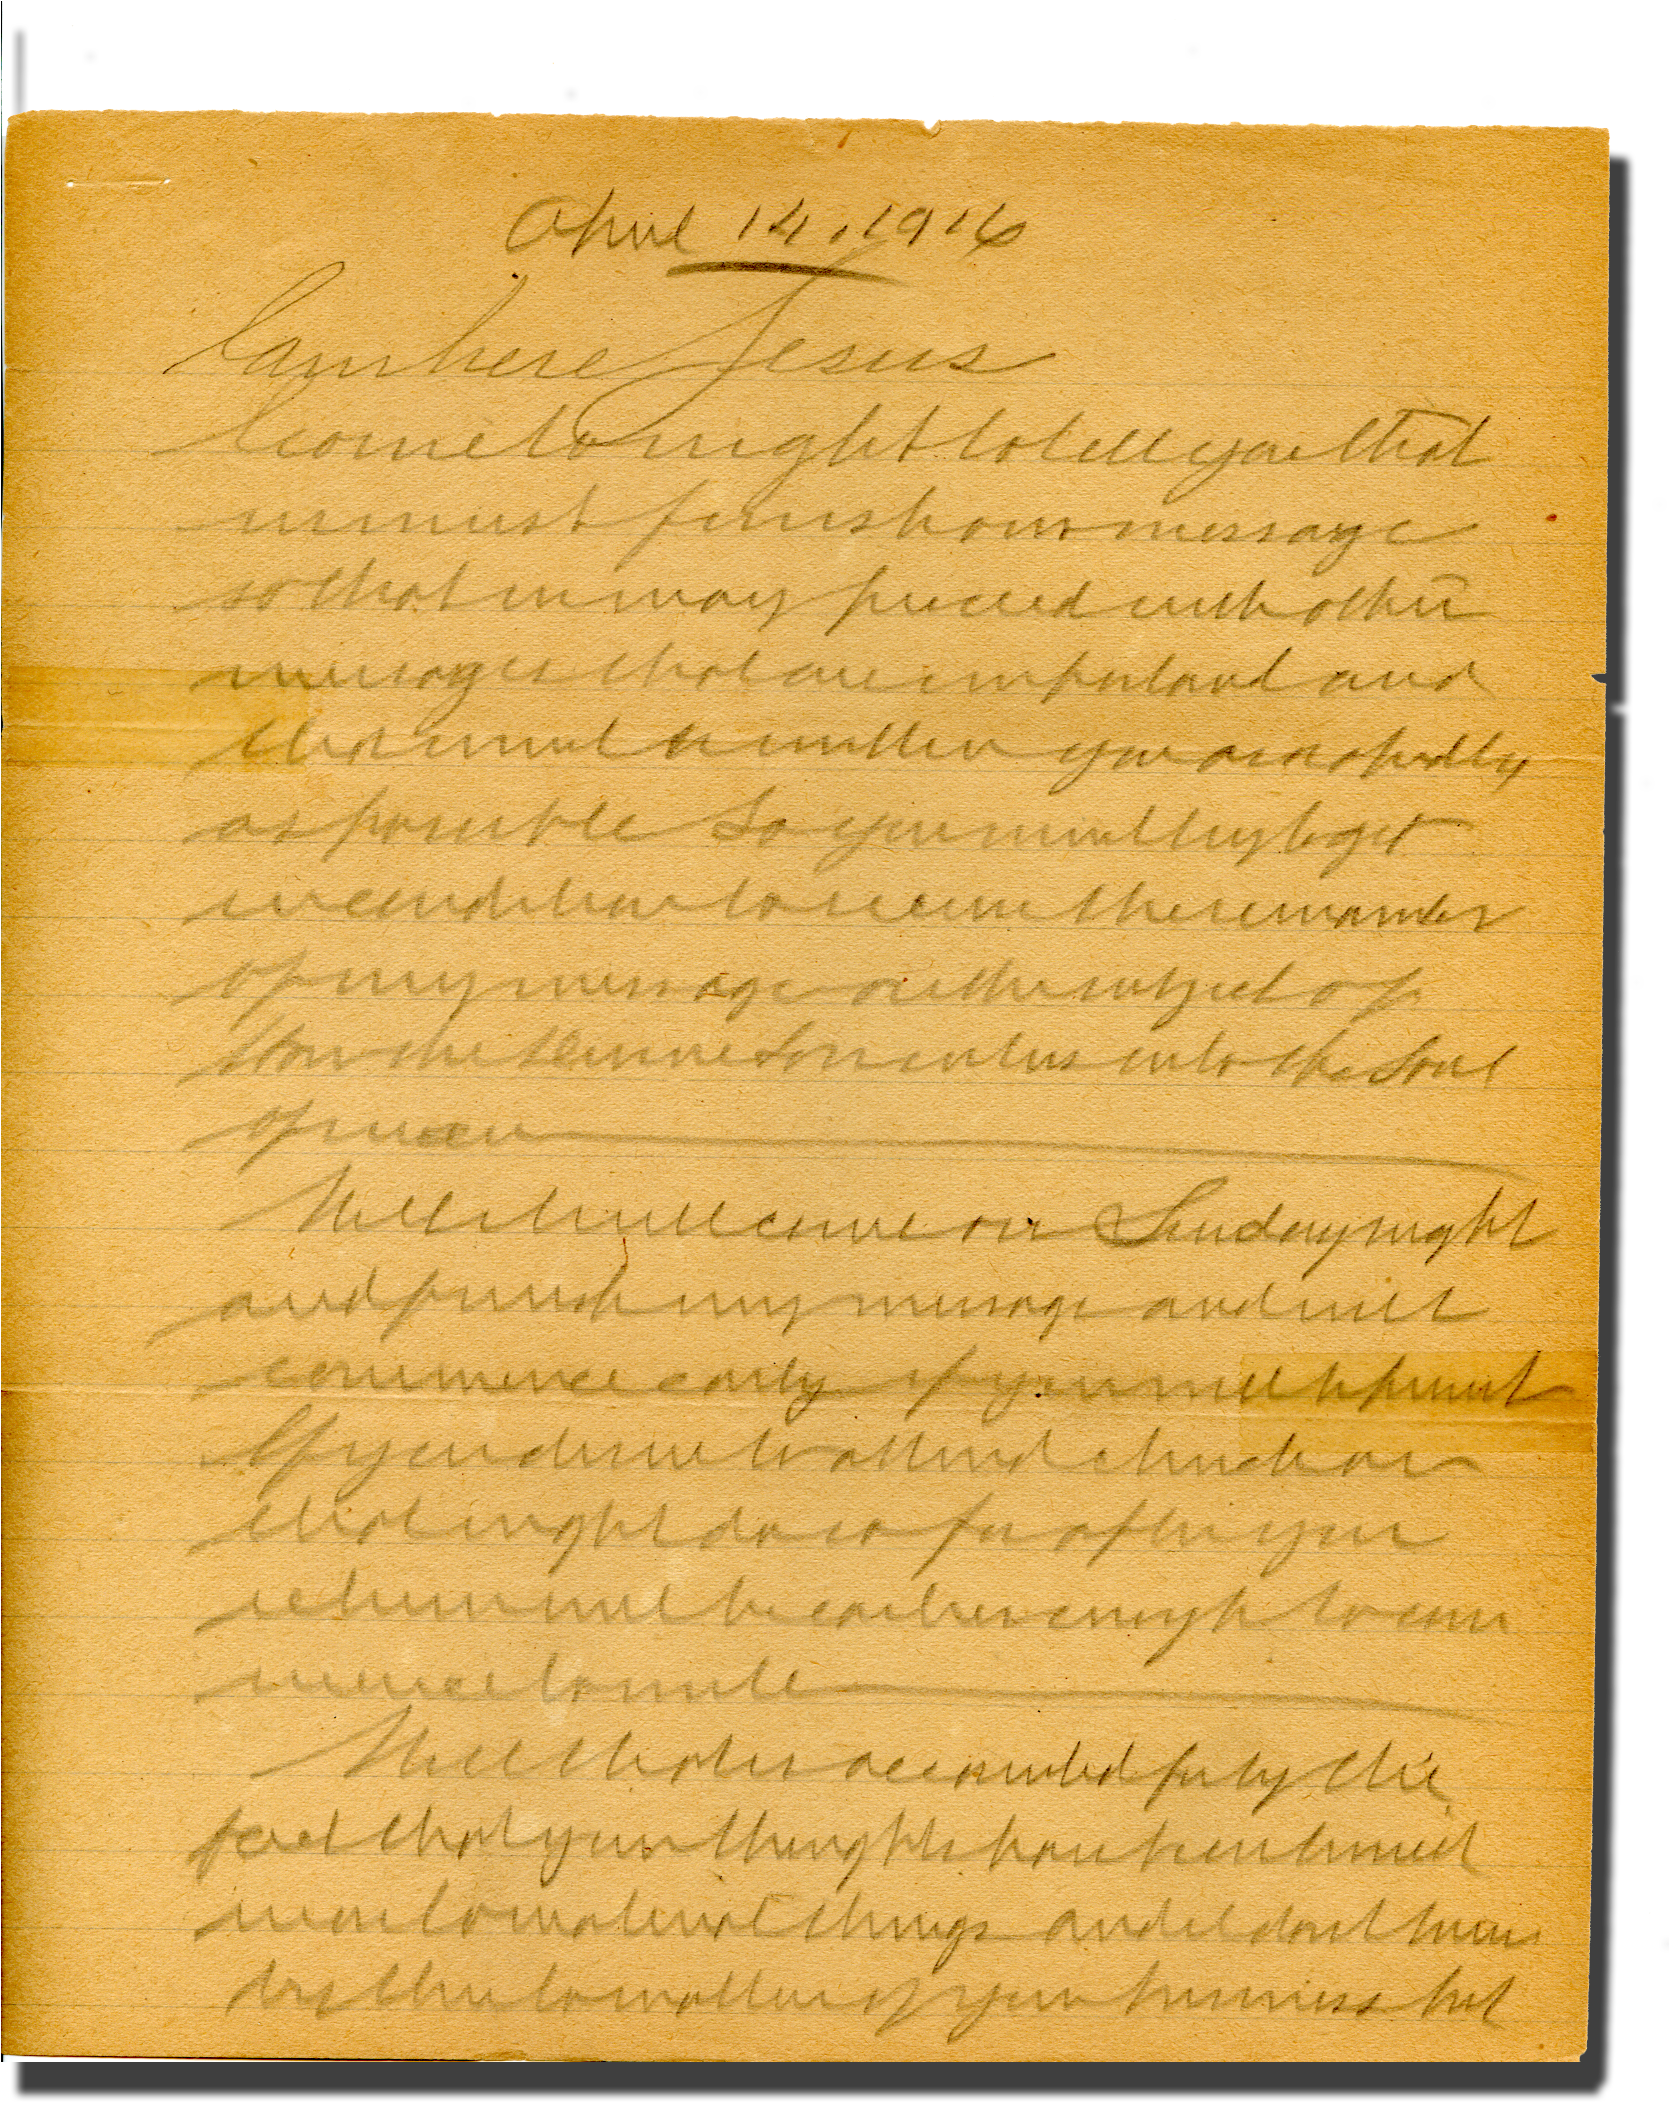 April 14, 1916
I am here Jesus
I come to night to tell you that
we must finish our message
so that we may proceed with other
messages that are important and
that must be written you as rapidly
as possible So you must try to get
in condition to receive the remainder
of my message on the subject of
How the Divine Love enters into the Soul
of man
Well I will come on Sunday night
and finish my message and will
commence early if you will permit
If you desire to attend church on
that night do so for after you
return will be early enough to com
mence to write
Well that is accounted for by the
fact that your thoughts have been turned
more to material things and I dont mean
by this to matters of your business but